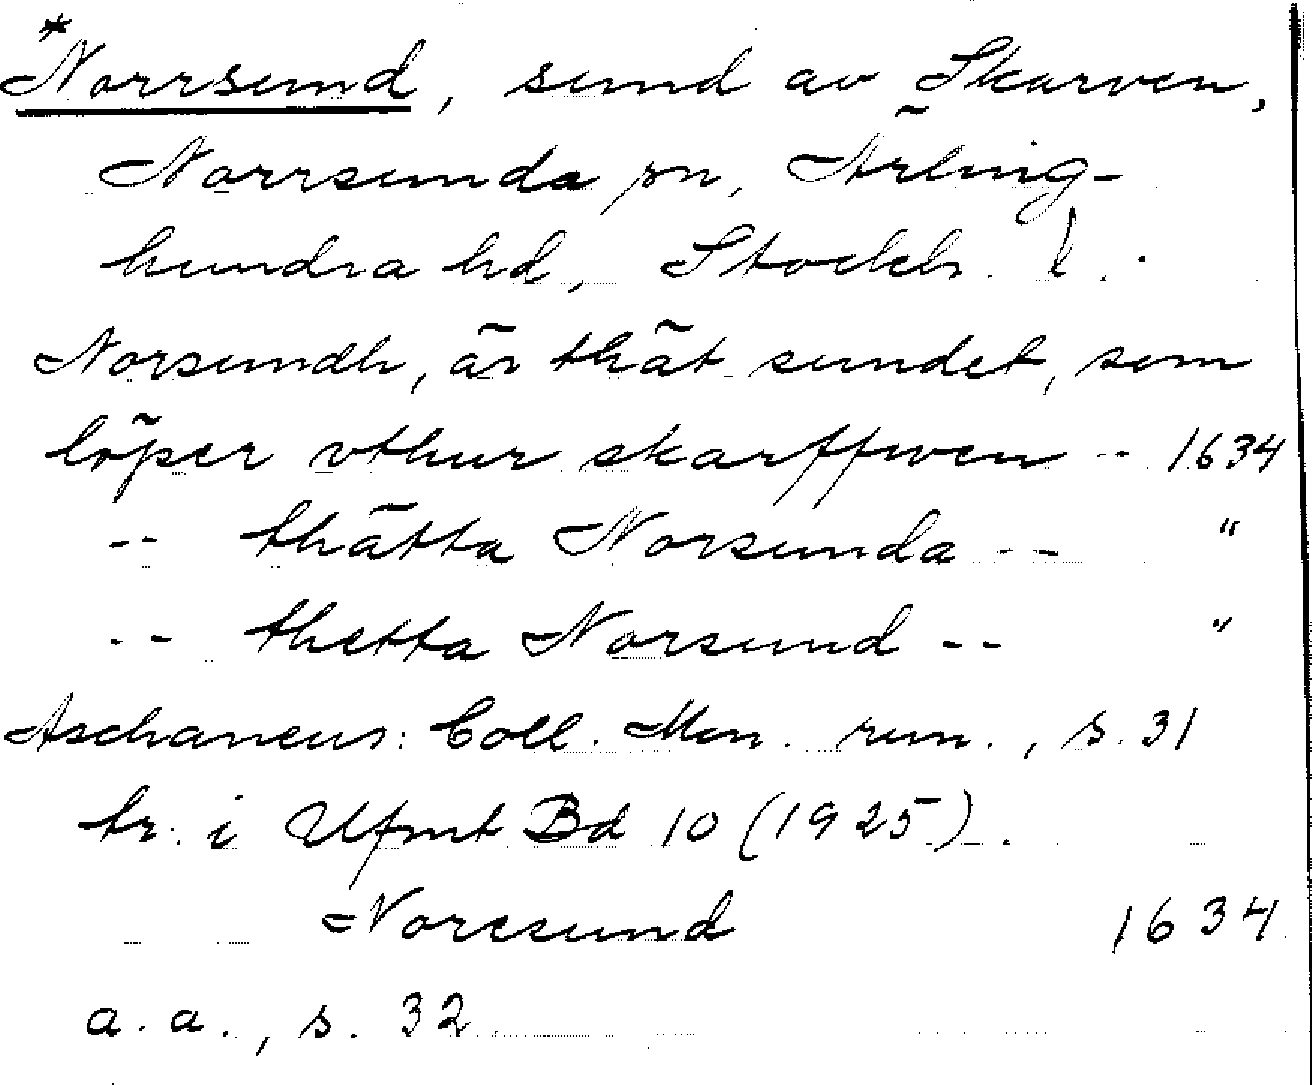 *Norrsund, sund av Skarven,
Norrsunda sn, Ärling-
hundra hd, Stockh. l.
Norsundh, är thät sundet, som
löper vthur skarffwen -- 1634
-- thätta Norsunda -- "
-- thetta Norsund -- "
Aschaneus: Coll. Mon. run., s. 31
tr. i Ufmt Bd 10 (1925).
Noresund 1634
a. a., s. 32